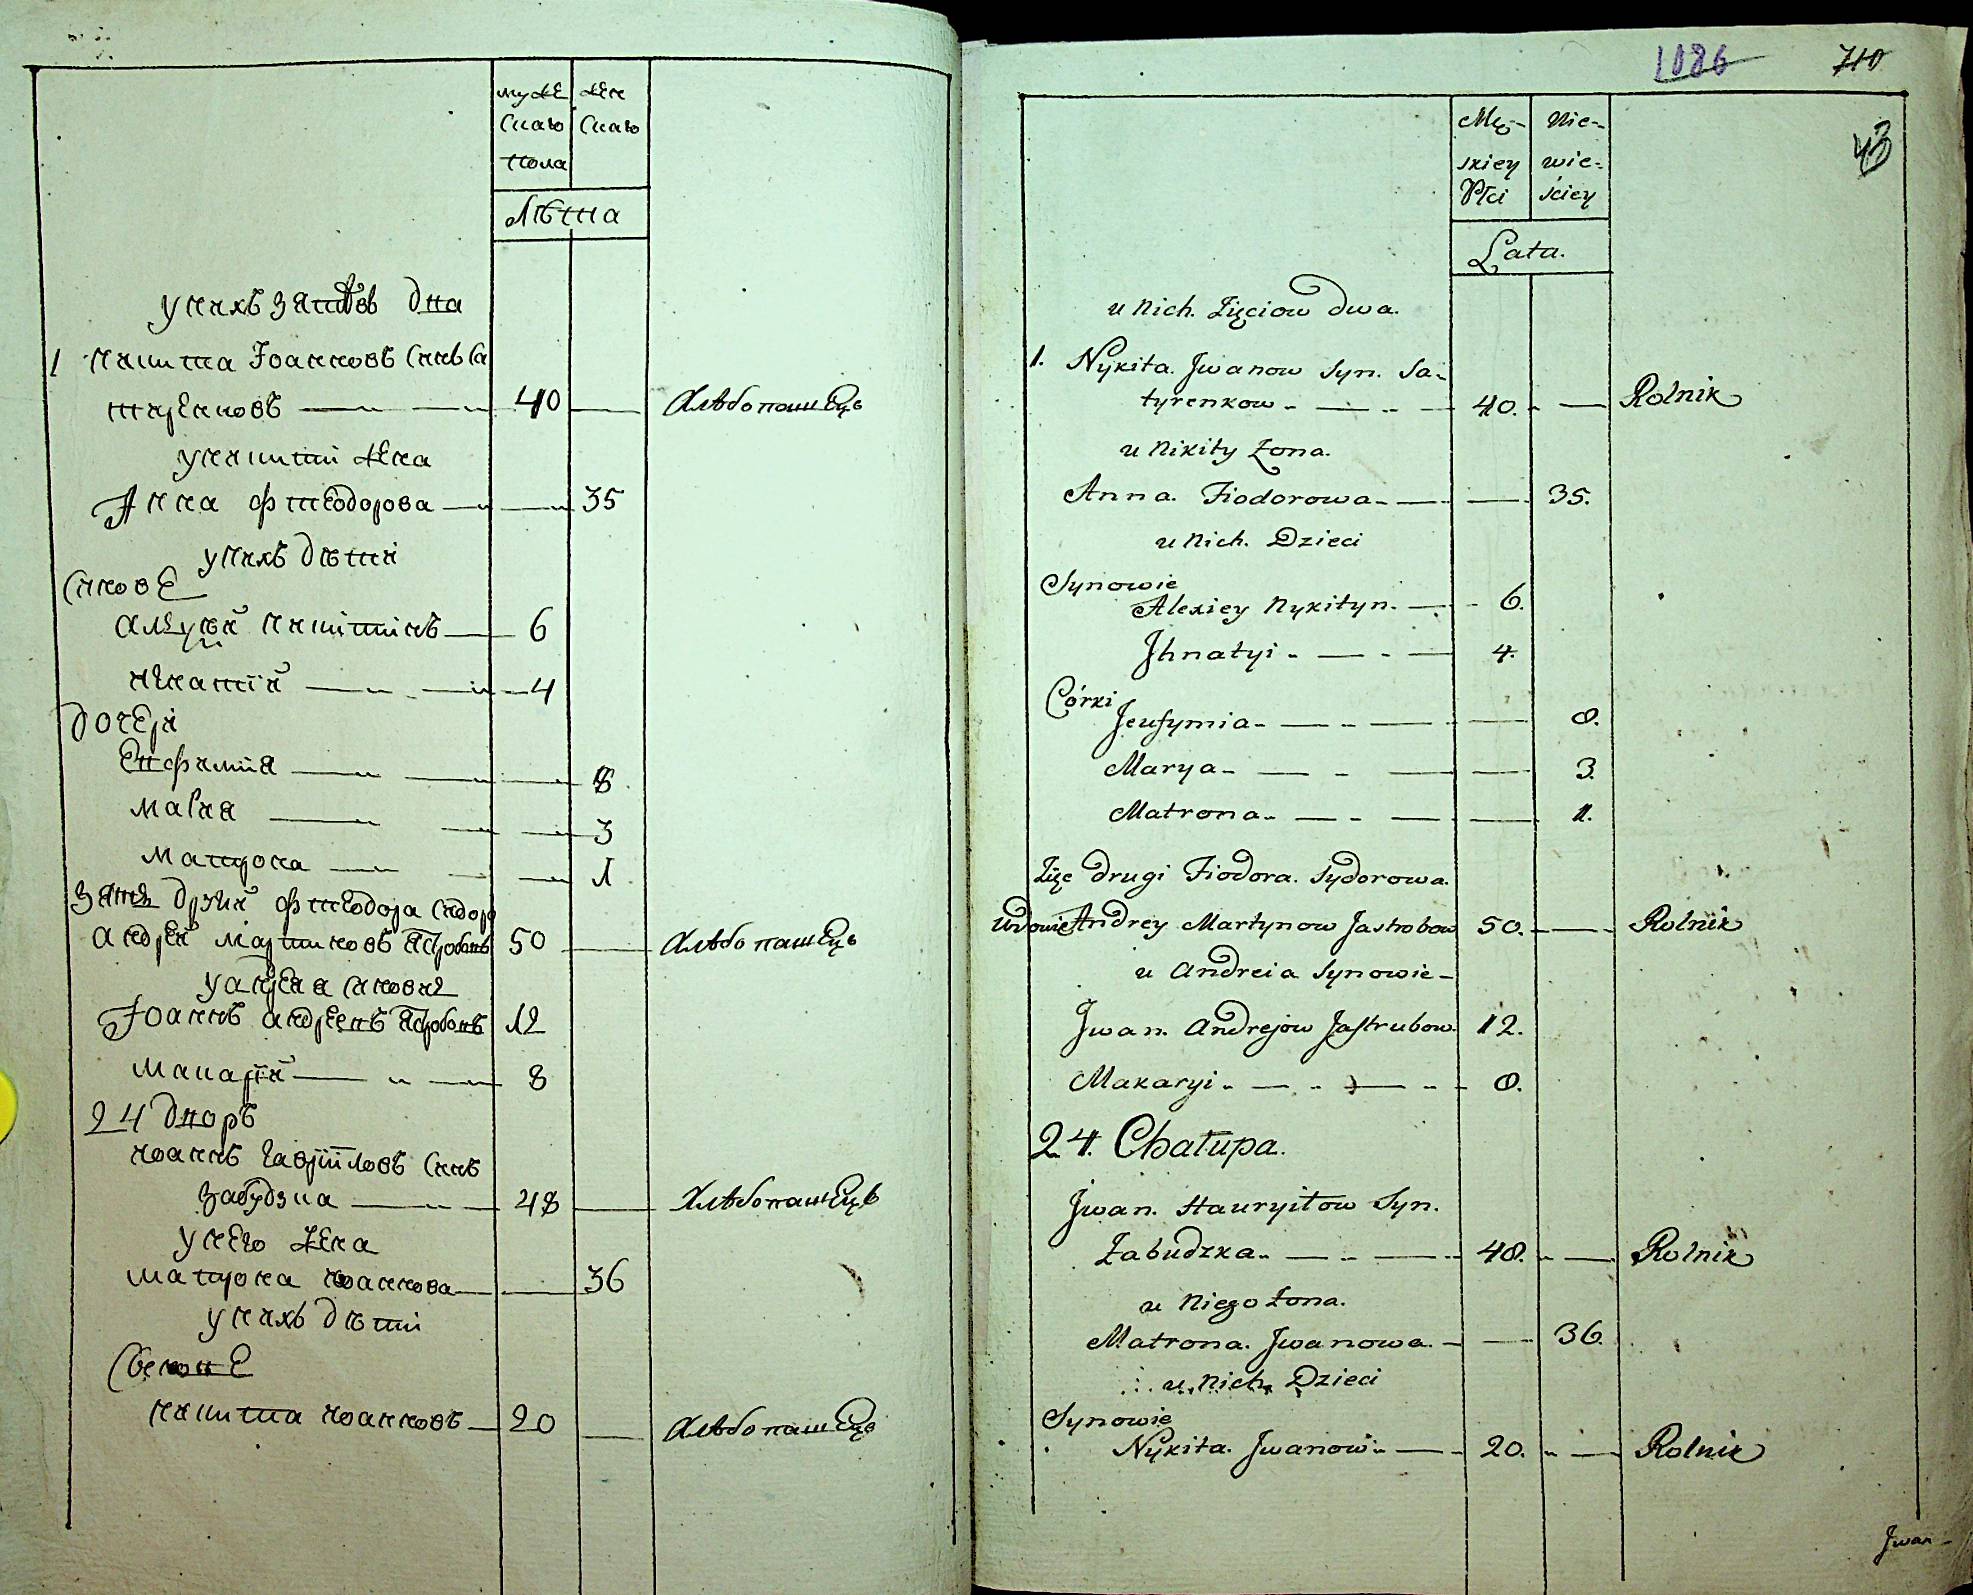 муже
скаго
пола
жен
скаго
лѣта
у нихъ зятѣвъ два
1 никита Іоанновъ синъ Са
тиренковъ 40 хлѣбопашецъ
у никити жена
Анна фтеодорова 35
у нихъ дѣти
синове
алеѯѣй никитинъ 6
игнатій 4
дочери
Евфимия 8
мария 3
матрона 1
зять другий фтеодора сидоро
андрей мартиновъ ястробовъ 50 хлѣбопашецъ
у андрея синовя
Іоаннъ андреевъ ястробовъ 12
макарій 8
24 дворъ
иоаннъ гавріиловъ синъ
забудзка 48 хлѣбопашецъ
у него жена
матрона иоаннова 36
у нихъ дѣти
никита иоанновъ 20 хлѣбопашецъ
1086 710
43
Mę-
skiey
Płci
Nie-
wie-
ściey
Lata.
u Nich. Zięciow dwa.
1. Nykita. Jwanow Syn. Sa-
tyrenkow 40. Rolnik
u Nikity Żona.
Anna. Fiodorowa 35.
u Nich. Dzieci
Synowie
Alexiey Nykityn. 6.
Jhnatyi 4.
Córki
Jeufymia 8.
Marya 3.
Matrona 1.
Zięc drugi Fiodora. Sydorowa.
Wdowiec Andrey Martynow Jastrobow 50. Rolnik
u Andreia Synowie
Jwan. Andrejow Jastrubow. 12.
Makaryi 8.
24. Chałupa.
Jwan. Hauryiłow Syn.
Zabudzka 48. Rolnik
u Niego Żona.
Matrona. Jwanowa. 36.
u Nich, Dzieci
Synowie
Nykita. Jwanow 20. Rolnik
Jwan